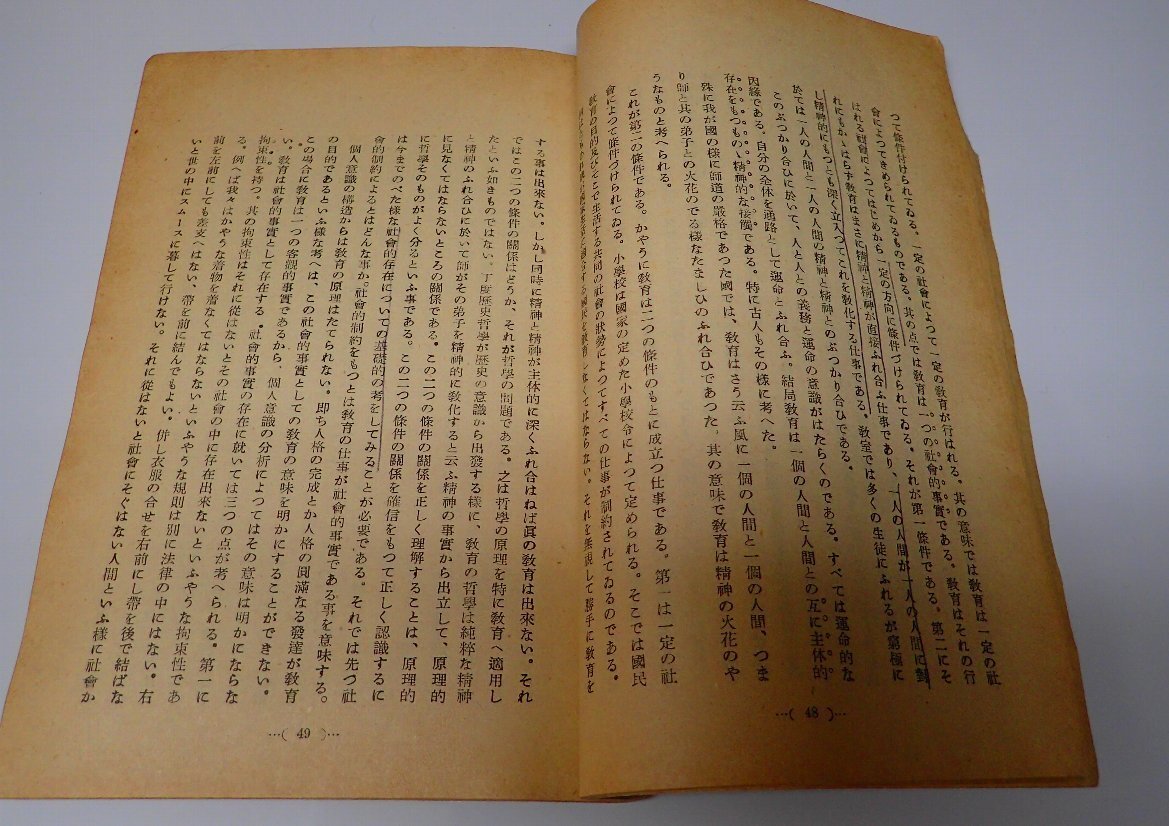 つて條件付けられてゐる。一定の社會によつて一定の敎育が行はれる。其の意味では敎育は一定の社
會によつてきめられてゐるものである。其の点では敎育は一つの社會的事實である。敎育はそれの行
はれる社會によつてはじめから一定の方向に條件づけられてゐる。それが第一條件である。第二にそ
れにもかゝはらず敎育はまさに精神と精神が直接ふれ合ふ仕事であり、一人の人間が一人の人間に對
し精神的にもつとも深く立入つてこれを敎化する仕事である。敎室では多くの生徒にふれるが窮極に
於ては一人の人間と一人の人間の精神と精神とのぶつかり合ひである。
このぶつかり合ひに於いて、人と人との義務と運命の意識がはたらくのである。すべては運命的な
因緣である。自分の全体を通路として運命とふれ合ふ。結局敎育は一個の人間と人間との互に主体的
存在をもつもの、精神的な接觸である。特に古人もその樣に考へた。
殊に我が國の樣に師道の嚴格であつた國では、敎育はさう云ふ風に一個の人間と一個の人間、つま
り師と其の弟子との火花のでる樣なたましひのふれ合ひであつた。其の意味で敎育は精神の火花のや
うなものと考へられる。
これが第二の條件である。かやうに敎育は二つの條件のもとに成立つ仕事である。第一は一定の社
會によつて條件づけられてゐる。小學校は國家の定めた小學校令によつて定められる。そこでは國民
敎育の目的及びそこで生活する共同の社會の狀勢によつてすべての仕事が制約されてゐるのである。
なくてはならない。それを無視して勝手に敎育を
…( 48 )…
する事は出來ない。しかし同時に精神と精神が主体的に深くふれ合はねば眞の敎育は出來ない。それ
ではこの二つの條件の關係はどうか、それが哲學の問題である。之は哲學の原理を特に敎育へ適用し
たといふ如きものではない。丁度歷史哲學が歷史の意識から出發する樣に、敎育の哲學は純粹な精神
と精神のふれ合ひに於いて師がその弟子を精神的に敎化すると云ふ精神の事實から出立して、原理的
に見なくてはならないところの關係である。この二つの條件の關係を正しく理解することは、原理的
に哲學そのものがよく分るといふ事である。この二つの條件の關係を確信をもつて正しく認識するに
は今までのべた樣な社會的存在についての基礎的の考をしてみることが必要である。それでは先つ社
會的制約によるとはどんな事か。社會的制約をもつとは敎育の仕事が社會的事實である事を意味する。
個人意識の構造からは敎育の原理はたてられない。即ち人格の完成とか人格の圓滿なる發達が敎育
の目的であるといふ樣な考へは、この社會的事實としての敎育の意味を明かにすることができない。
この場合に敎育は一つの客觀的事實であるから、個人意識の分析によつてはその意味は明かにならな
い。敎育は社會的事實として存在する。社會的事實の存在に就いては三つの点が考へられる。第一に
拘束性を持つ。其の拘束性はそれに從はないとその社會の中に存在出來ないといふやうな拘束性であ
る。例へば我々はかやうな着物を着なくてはならないといふやうな規則は別に法律の中にはない。右
前を左前にしても差支へはない、帶を前に結んでもよい。併し衣服の合せを右前にし帶を後で結ばな
いと世の中にスムースに暮して行けない。それに從はないと社會にそぐはない人間といふ樣に社會か
…( 49 )…